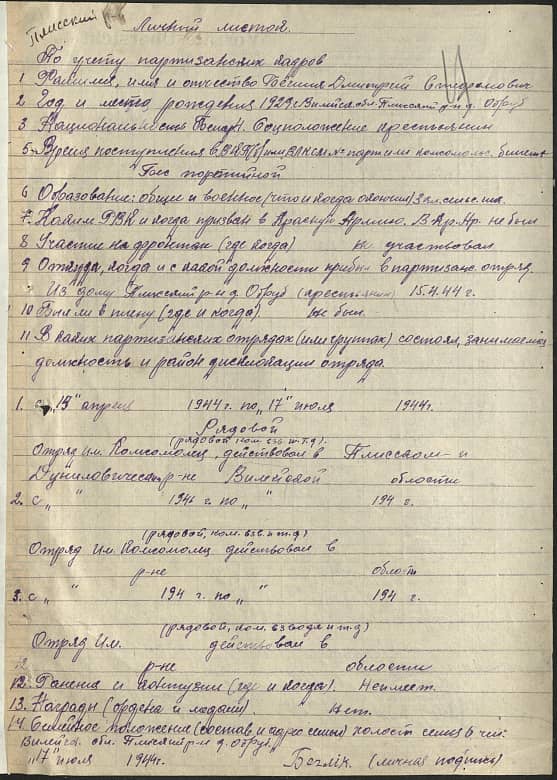 Плисский р-н
Личный листок
По учету партизанских кадров
1 Фамилия, имя и отчество Дмитрий Степанович
2 Год и место рождения 1929 г Вилейск. обл. Плисский р-н д. Отруб
3 Национальность Белар. Соцположение крестьянин
5. Время поступления в ВКП(б) или ВЛКСМ № парт или комсомольс. билета
беспартийной
6 Образование: общее и военное (что и когда окончил) 3 кл. сельс. шк.
7. Каким РВК и когда призван в Красную Армию. В Кр. Ар. не был
8 Участие на фронтах (где когда) не участвовал
9 Откуда, когда и с какой должности прибыл в партизанс. отряд.
Из дому Плисский р-н д. Отруб (крестьянин) 15.4.44 г.
10 Был ли в плену (где и когда). не был
11 В каких партизанских отрядах (или группах) состоял, занимаемая
должность и район дислокации отряда.
1. с „15" апреля 1944 г. по „17" июля 1944 г.
Рядовой
(рядовой ком. взв. и т.д.)
Отряд им. Комсомолец, действовал в Плисском и
Дуниловическ р-не Вилейской области
2. с „ " 194 г. по „ " 194 г.
(рядовой, ком. взв. и т.д)
Отряд им. Комсомолец действовал в
р-не област
3. с „ " 194 г. по „ " 194 г.
(рядовой, ком. взвода и т.д)
Отряд им. действовал в
р-не области
12. Ранения и контузии (где и когда). Не имеет.
13. Награды (ордена и медали). нет.
14. Семейное положение (состав и адрес семьи) холост семья 6 чел:
Вилейск. обл. Плисский р-н д. Отруб.
„17" июля 1944 г. (личная подпись)